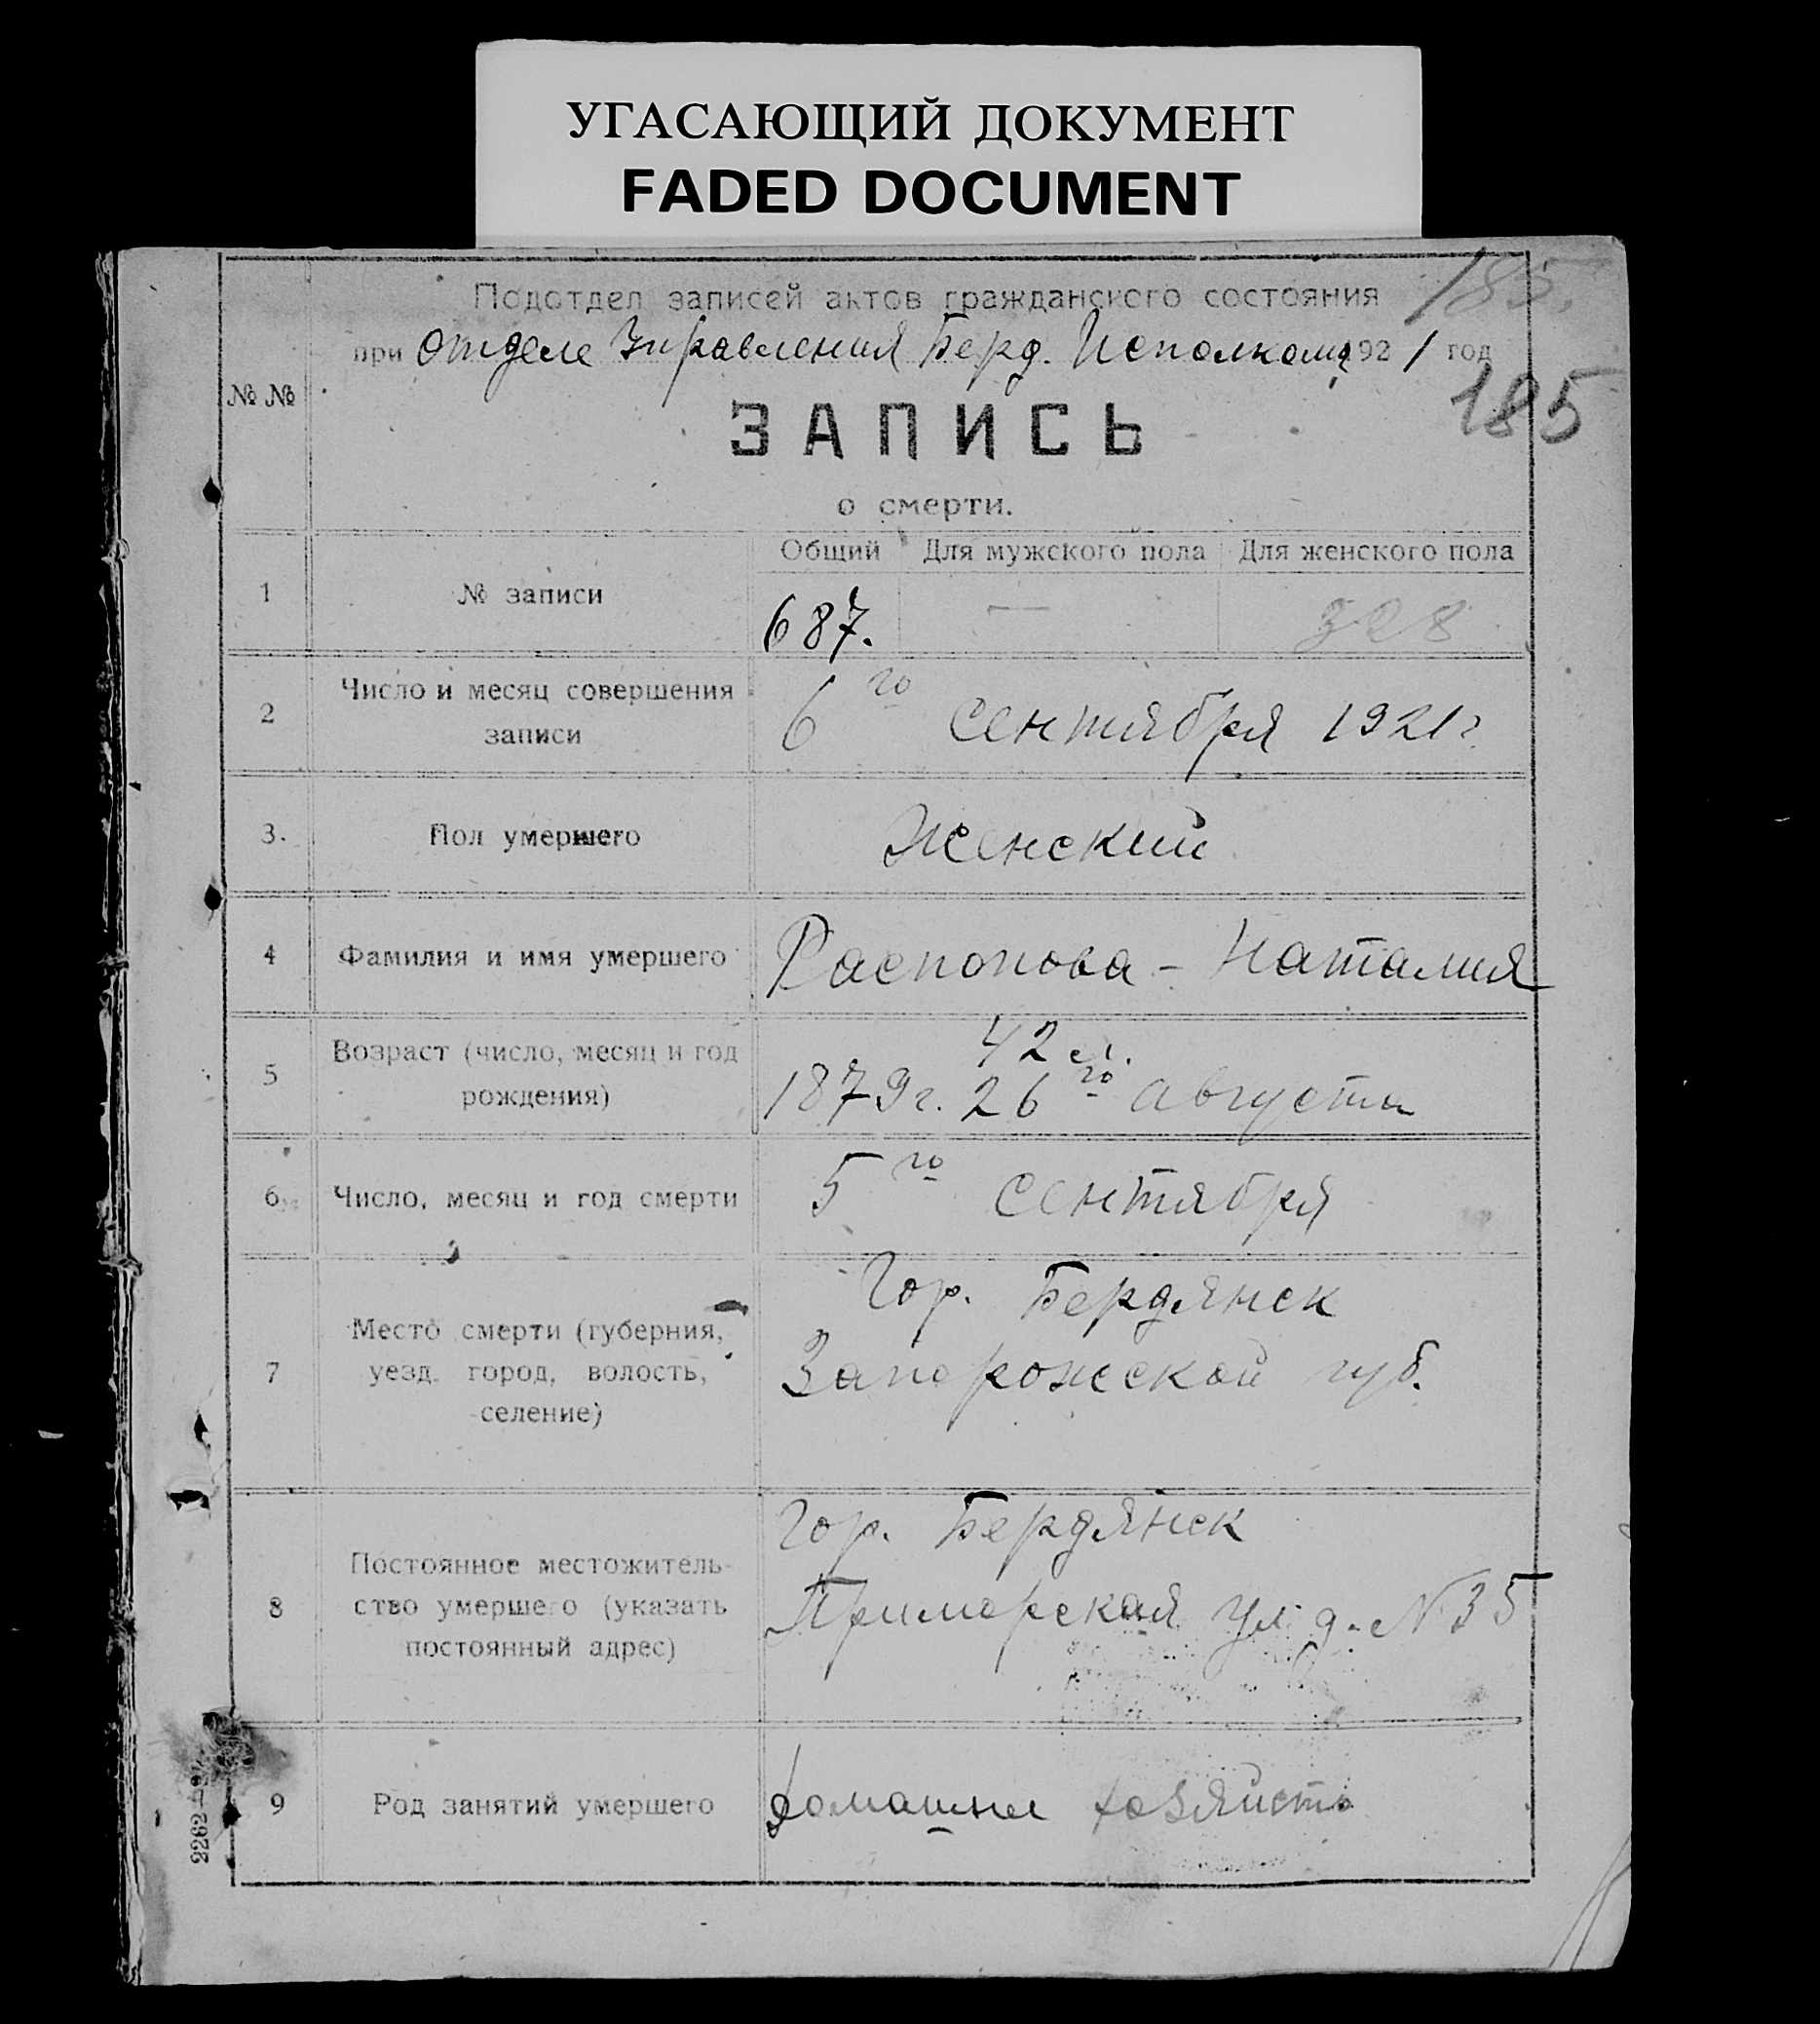 УГАСАЮЩИЙ ДОКУМЕНТ
FADED DOCUMENT
185.
Подотдел записей актов гражданского состояния
при Отделе Управления Берд. Исполкома 1921 год
185
№ №
ЗАПИСЬ
о смерти.
Общий Для мужского пола Для женского пола
1 № записи 687. — 328
2 Число и месяц совершения
записи
6го Сентября 1921 г.
3. Пол умершего Женский
4 Фамилия и имя умершего Распопова - Наталия
5 Возраст (число, месяц и год
рождения)
42 л.
1879 г. 26го Августа
6 Число, месяц и год смерти 5го Сентября
7 Место смерти (губерния,
уезд, город, волость,
селение)
Гор. Бердянск
Запорожской губ.
8 Постоянное местожитель-
ство умершего (указать
постоянный адрес)
Гор. Бердянск
Приморская ул. д. № 35
9 Род занятий умершего домашнее хозяйство
2262